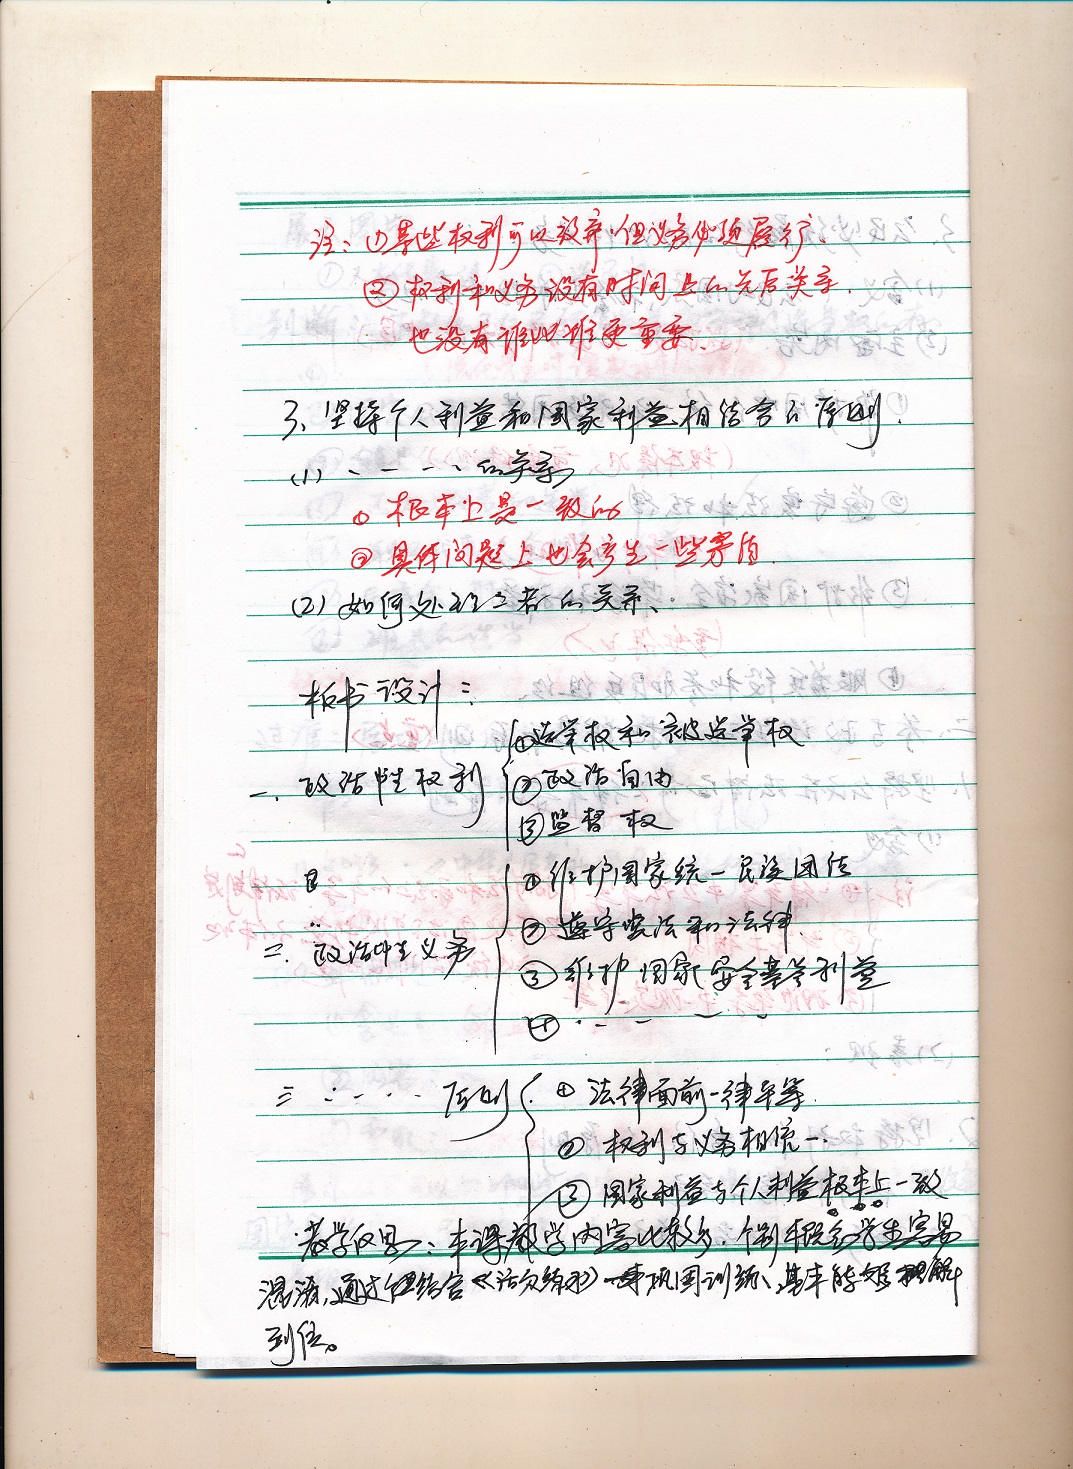 注：①某些权利可以放弃，但义务必须履行.
②权利和义务没有时间上的先后关系.
也没有谁比谁更重要.
3、坚持个人利益和国家利益相结合的原则.
(1) 、— — 、的关系
① 根本上是一致的
② 具体问题上也会产生一些矛盾.
(2) 如何处理二者的关系、
板书设计：
一. 政治性权利
①选举权和被选举权
②政治自由
③监督权
二. 政治性义务
①维护国家统一民族团结
② 遵守宪法和法律.
③ 维护国家安全荣誉利益
④ . — — — .
三 . . . . . 原则
① 法律面前一律平等.
② 权利与义务相统一.
③ 国家利益与个人利益根本上一致
教学反思：本课教学内容比较多. 个别概念学生容易
混淆, 通过结合《活页练习》巩固训练、基本能理解
到位。